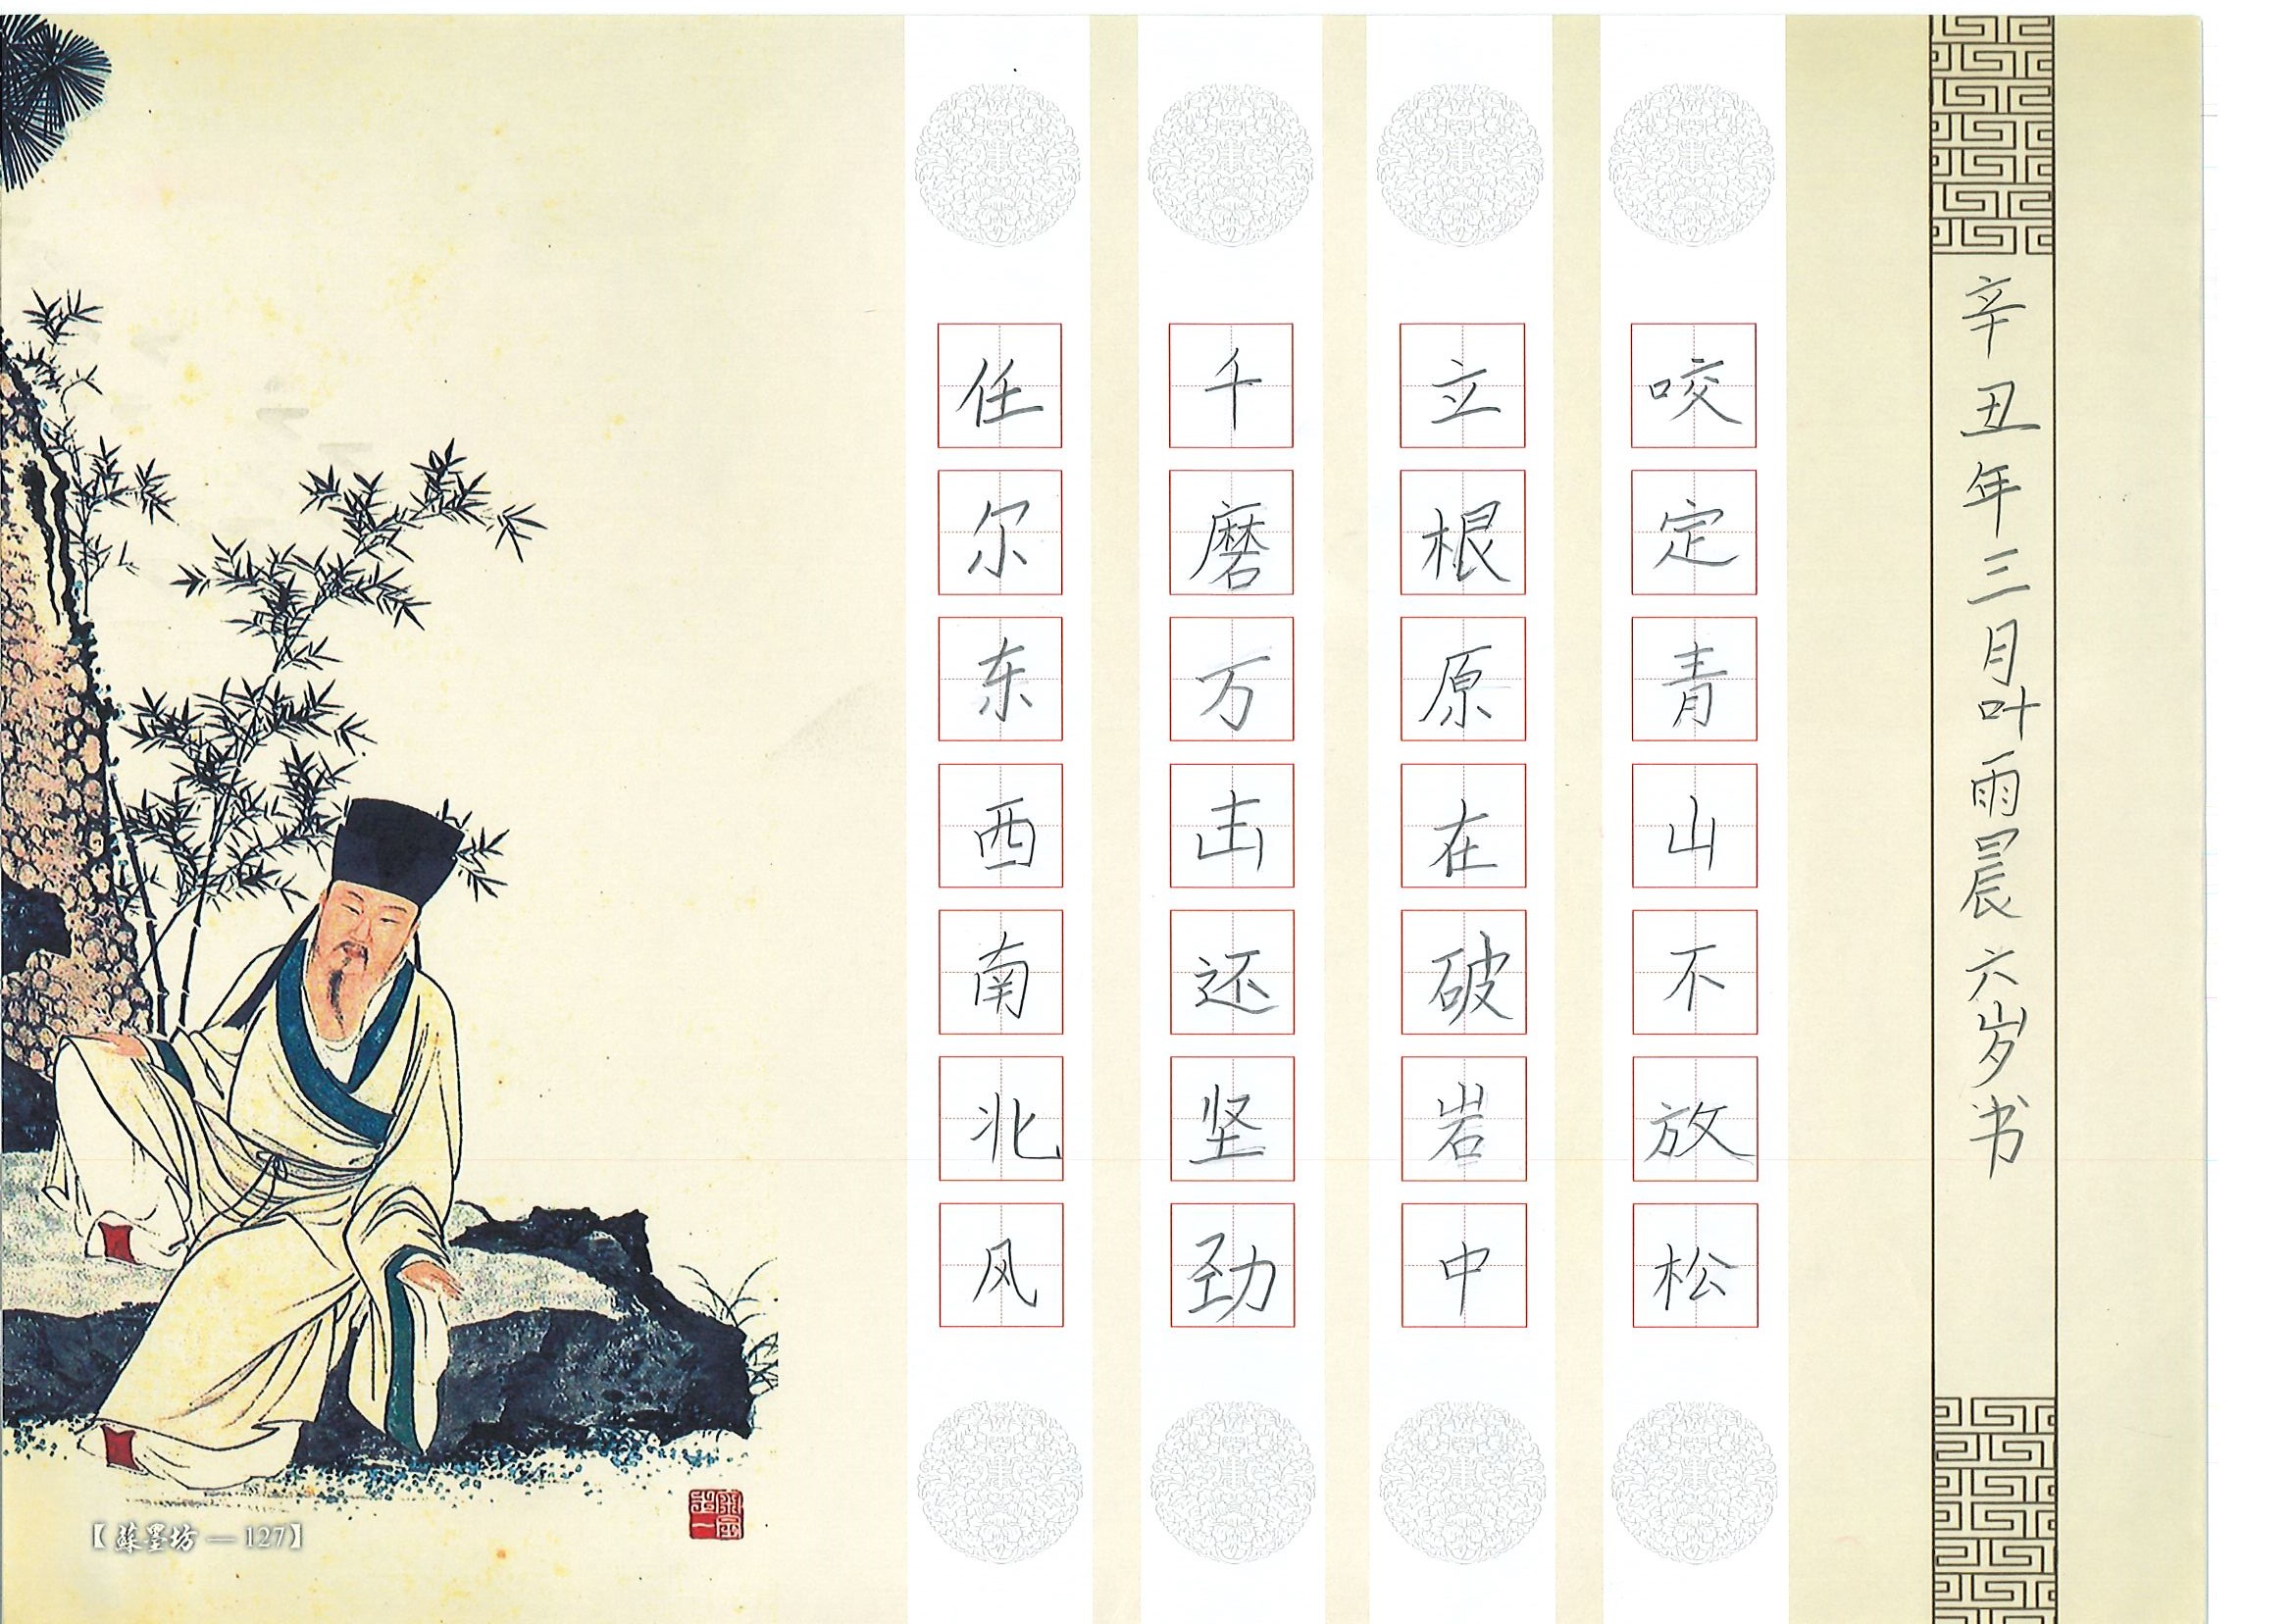 辛丑年三月叶雨晨六岁书
咬定青山不放松
立根原在破岩中
千磨万击还坚劲
任尔东西南北风
【蘇墨坊—127】